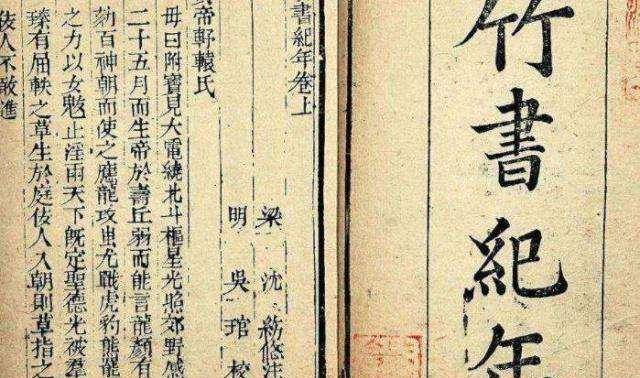 竹書紀年
書紀年卷上
梁 沈 約 注
明 吳 琯 校
帝軒轅氏
母曰附寶見大電繞北斗樞星光照郊野感
二十五月而生帝於壽丘弱而能言龍顏有
劾百神朝而使之應龍攻蚩尤戰虎豹熊羆
之力以女魃止淫雨天下既定聖德光被羣
臻有屈軼之草生於庭佞人入朝則草指之
佞人不敢進